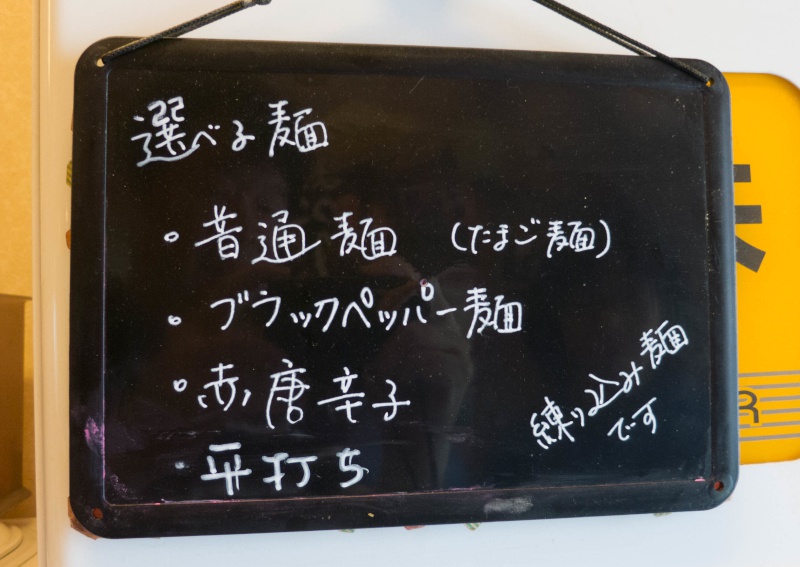 選べる麺
・普通麺 (たまご麺)
・ブラックペッパー麺
・赤唐辛子
・平打ち
練り込み麺
です